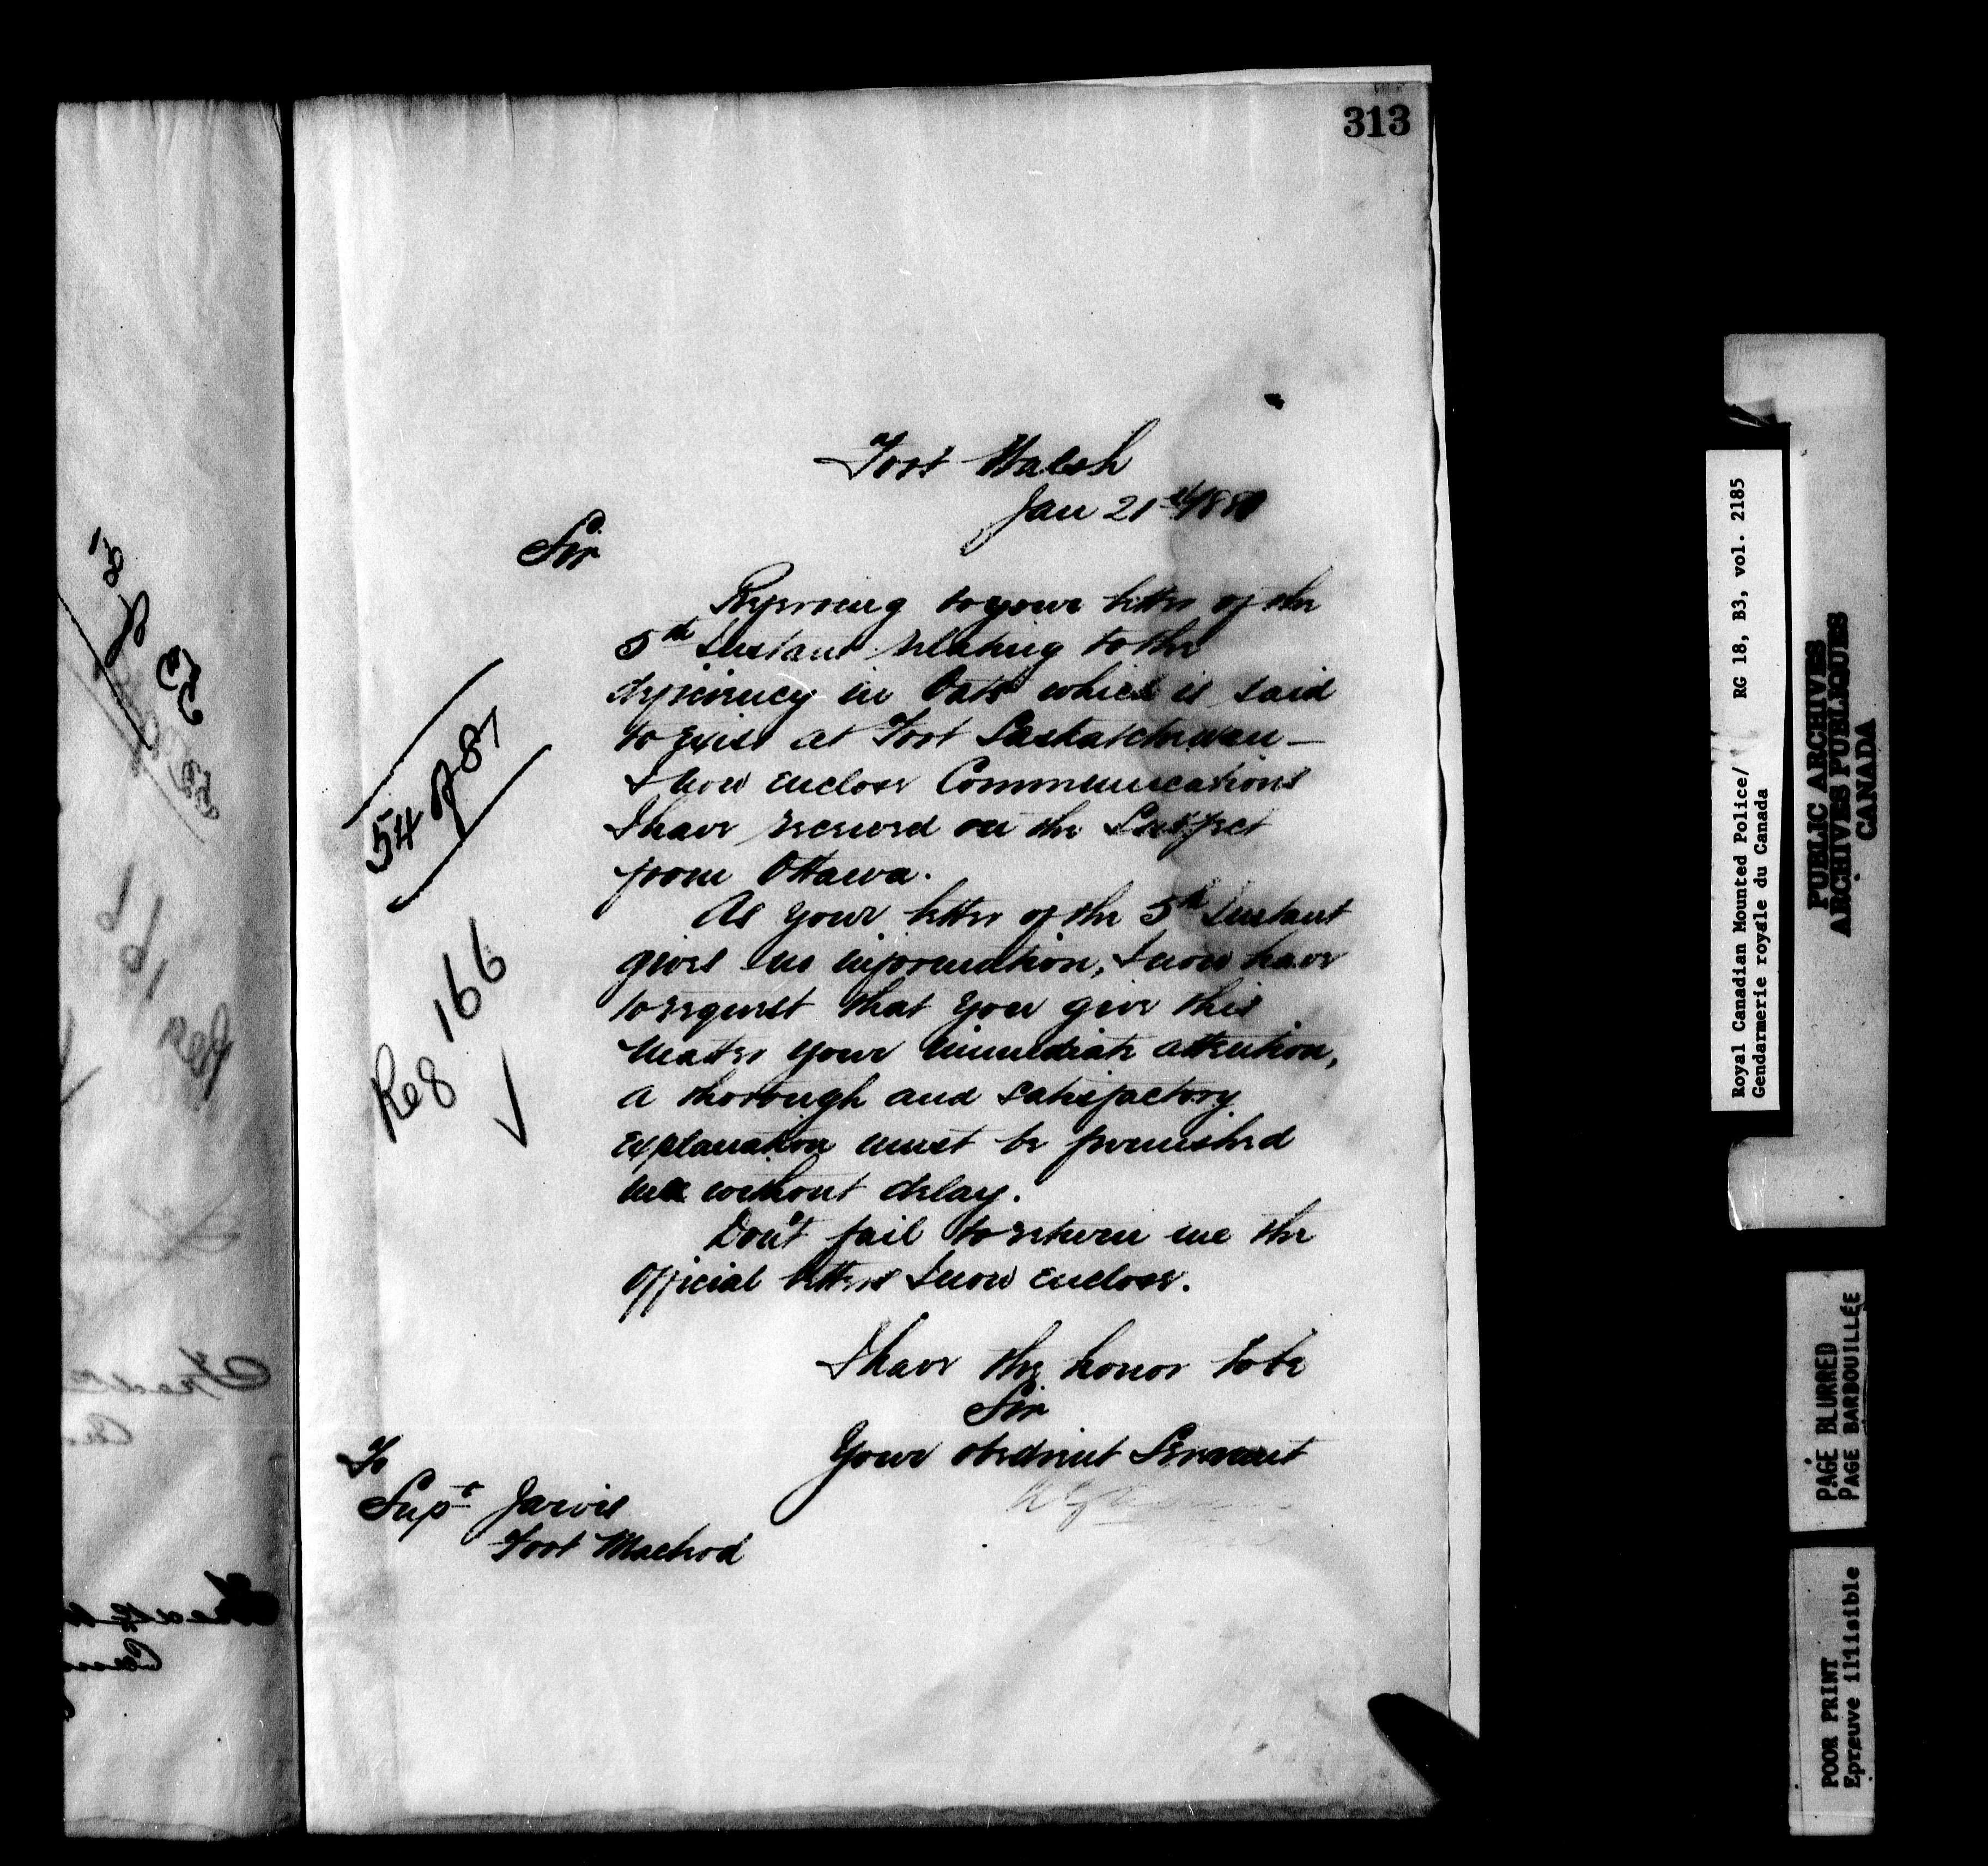 313
Fort Walsh
Jan 21st/1881
Sir
Referring to your letter of the
5th Instant relating to the
deficiency in Oats which is said
to exist at Fort Saskatchewan —
I now enclose Communications
I have received on the Subject
from Ottawa.
As your letter of the 5th Instant
gives no information, I now have
to request that you give this
matter your immediate attention,
a thorough and satisfactory
explanation must be furnished
me without delay.
Don't fail to return me the
Official letters I now enclose.
I have the honor to be
Sir
Your obedient Servant
To
Supt Jarvis
Fort Macleod
54 of 81
Reg 166
Royal Canadian Mounted Police/ RG 18, B3, vol. 2185
Gendarmerie royale du Canada
PUBLIC ARCHIVES
ARCHIVES PUBLIQUES
CANADA
PAGE BLURRED
PAGE BARBOUILLÉE
POOR PRINT
Epreuve illisible